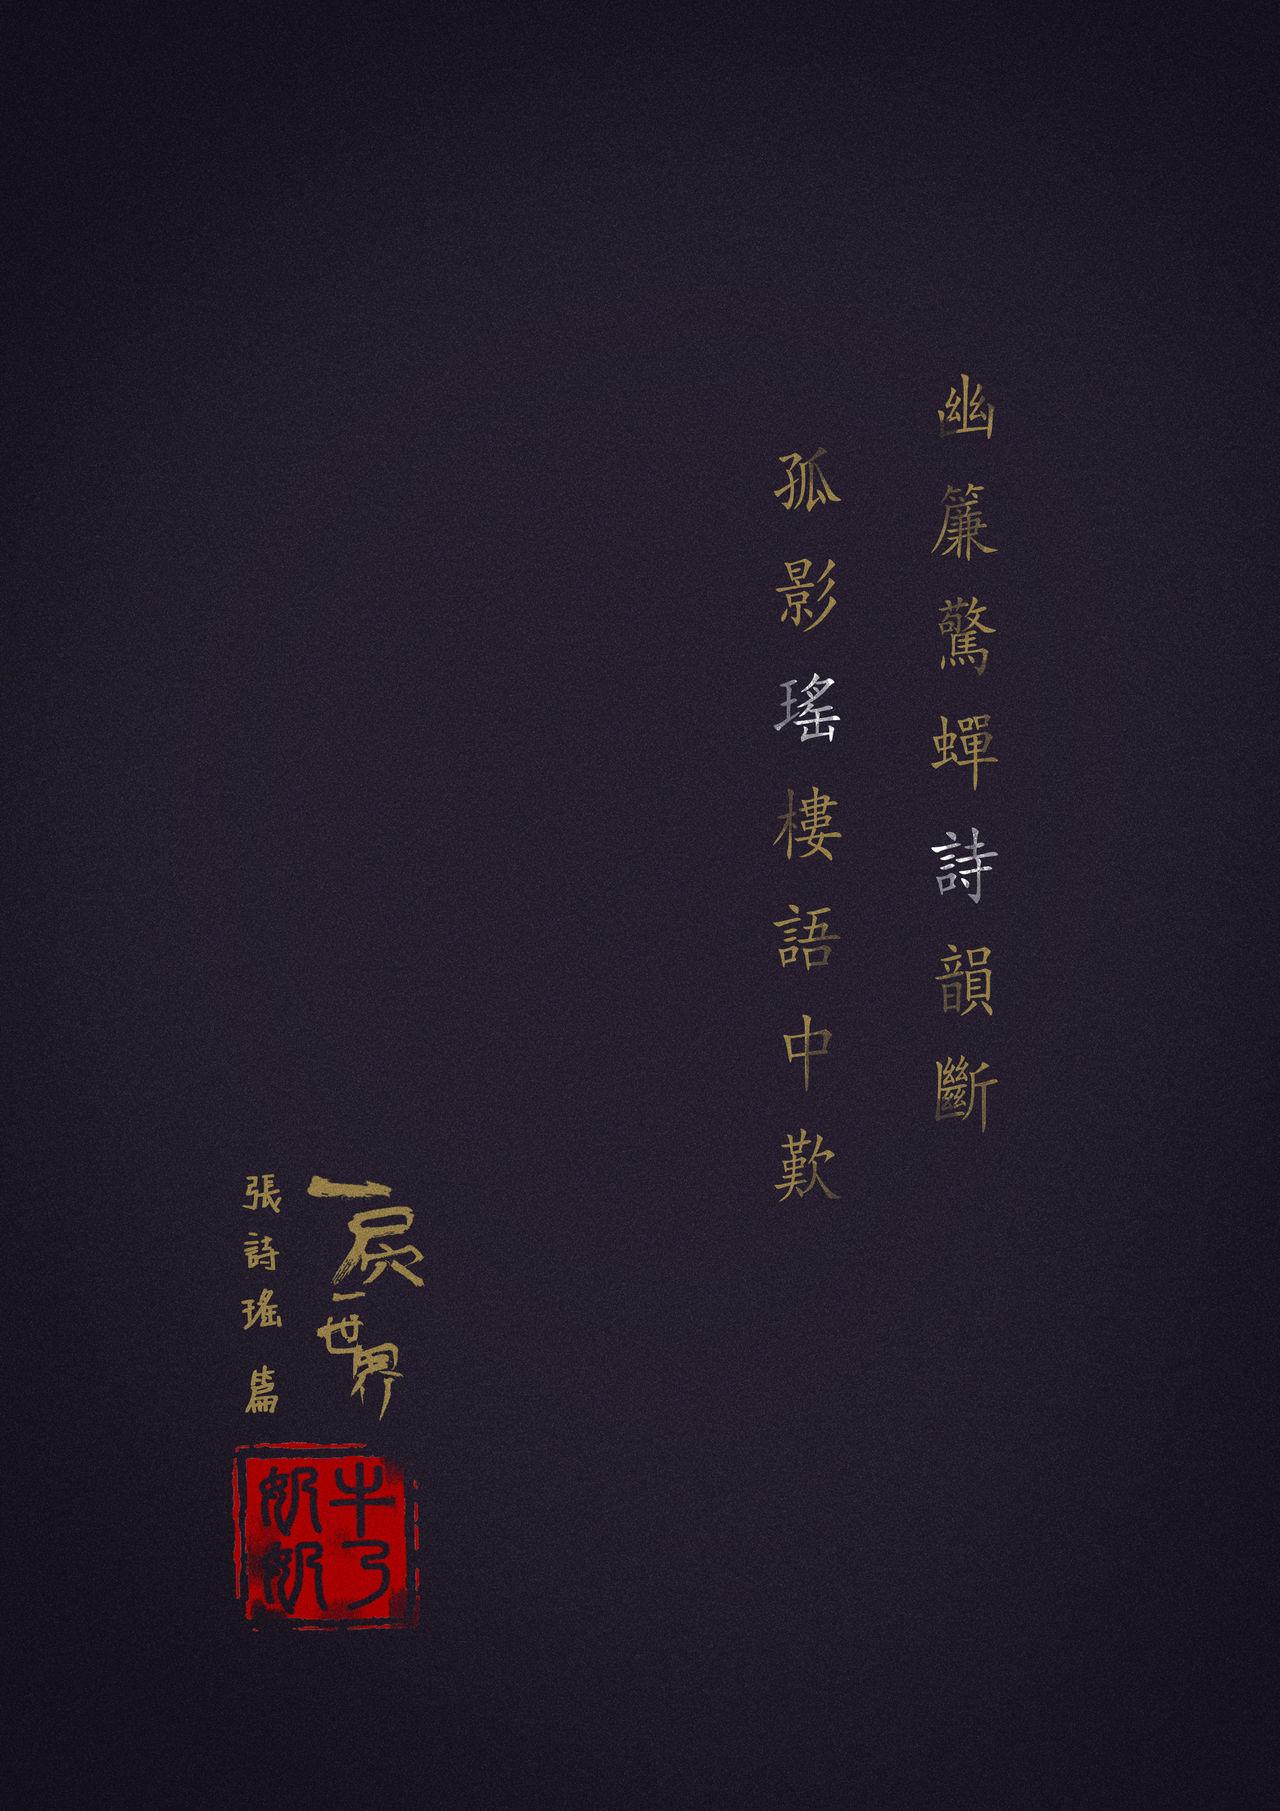 幽簾驚蟬詩韻斷
孤影瑤樓語中歎
一屄一世界
張詩瑤 篇
牛乃
奶奶